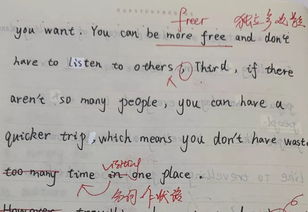 freer 独立多, 数
you want. You can be more free and don't
have to listen to others, Third, if there
aren't so many people, you can have a
quicker trip, which means you don't have waste
wasted
too many time in one place.
作状语
However